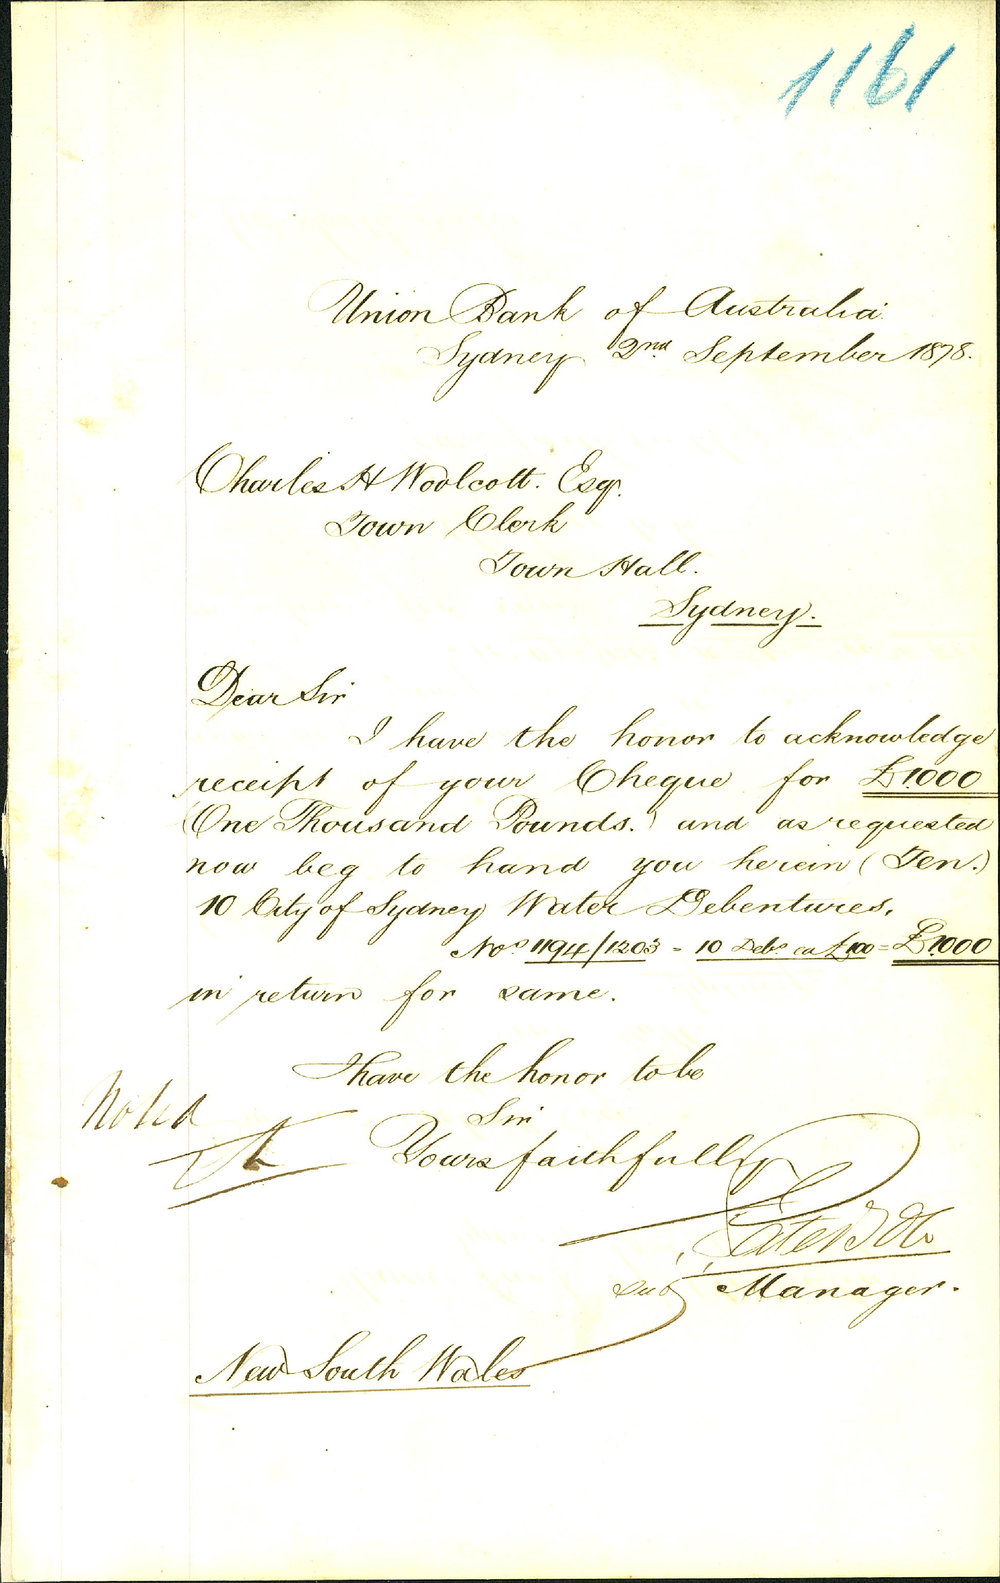 1161
Union Bank of Australia
Sydney 2nd September 1878.
Charles H Woolcott. Esqr.
Town Clerk
Town Hall.
Sydney.
Dear Sir
I have the honor to acknowledge
receipt of your Cheque for £1000
(One Thousand Pounds.) and as requested
now beg to hand you herein (Ten.)
10 City of Sydney Water Debentures,
Nos 1194/1203 - 10 Debs ea £100 = £1000
in return for same.
I have the honor to be
Sir
Noted
Yours faithfully
Sub Manager.
New South Wales